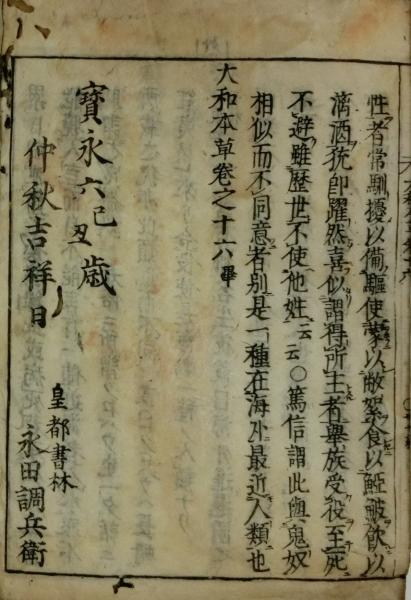 性者常馴擾以備驅使蒙以敝絮食以鮭䱹飲以
漓酒狁卽躍然喜似謂得所主者舉族受役至死
不避雖歷世不使他姓云云○篤信謂此與鬼奴
相似而不同意者別是一種在海外最近人類也
大和本草卷之十六畢
寶永六己丑歲
仲秋吉祥日
皇都書林
永田調兵衛